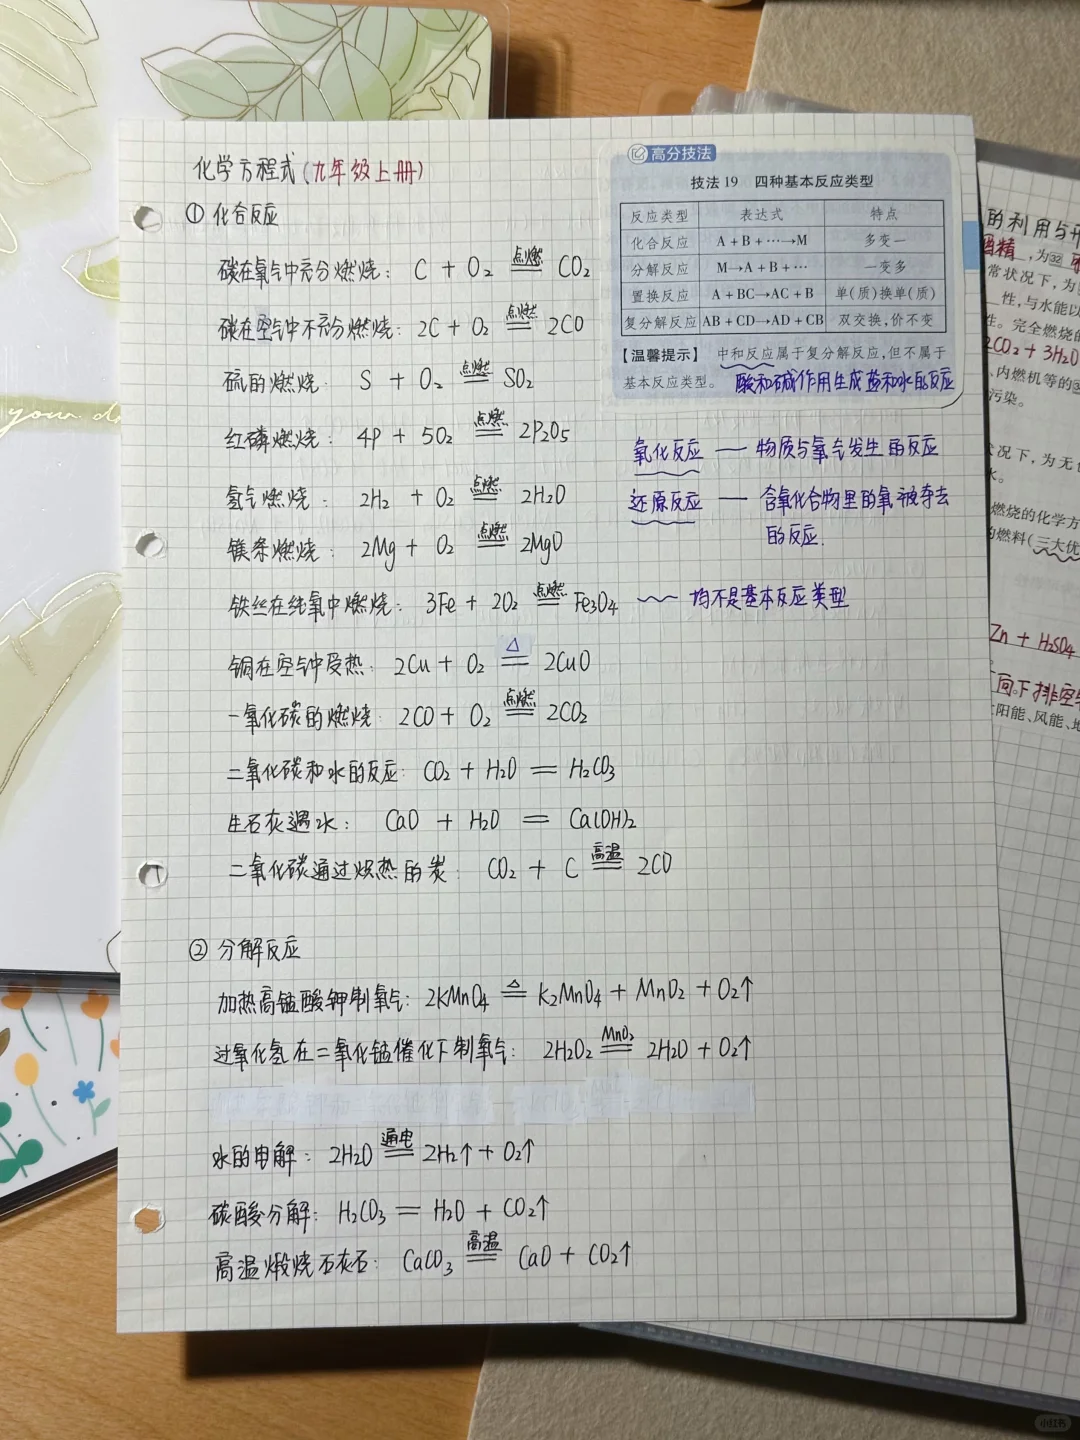 化学方程式(九年级上册)
① 化合反应
碳在氧气中充分燃烧: C + O₂ 点燃 == CO₂
碳在空气中不充分燃烧: 2C + O₂ 点燃 == 2CO
硫的燃烧: S + O₂ 点燃 == SO₂
红磷燃烧: 4P + 5O₂ 点燃 == 2P₂O₅
氢气燃烧: 2H₂ + O₂ 点燃 == 2H₂O
镁条燃烧: 2Mg + O₂ 点燃 == 2MgO
铁丝在纯氧中燃烧: 3Fe + 2O₂ 点燃 == Fe₃O₄
铜在空气中受热: 2Cu + O₂ △ == 2CuO
一氧化碳的燃烧: 2CO + O₂ 点燃 == 2CO₂
二氧化碳和水的反应: CO₂ + H₂O == H₂CO₃
生石灰遇水: CaO + H₂O == Ca(OH)₂
二氧化碳通过炽热的炭: CO₂ + C 高温 == 2CO
② 分解反应
加热高锰酸钾制氧气: 2KMnO₄ △ == K₂MnO₄ + MnO₂ + O₂↑
过氧化氢在二氧化锰催化下制氧气: 2H₂O₂ MnO₂ == 2H₂O + O₂↑
水的电解: 2H₂O 通电 == 2H₂↑ + O₂↑
碳酸分解: H₂CO₃ == H₂O + CO₂↑
高温煅烧石灰石: CaCO₃ 高温 == CaO + CO₂↑
高分技法
技法19 四种基本反应类型
反应类型 表达式 特点
化合反应 A+B+…→M 多变一
分解反应 M→A+B+… 一变多
置换反应 A+BC→AC+B 单(质)换单(质)
复分解反应 AB+CD→AD+CB 双交换,价不变
【温馨提示】 中和反应属于复分解反应,但不属于
基本反应类型。 酸和碱作用生成盐和水的反应
氧化反应 — 物质与氧气发生的反应
还原反应 — 含氧化合物里的氧被夺去
的反应.
均不是基本反应类型
的利用与开
酒精,为32
常状况下,为
性,与水能以
性。完全燃烧的
2CO₂ + 3H₂O
、内燃机等的
污染。
状况下,为无色
水。
燃烧的化学方
的燃料(三大优
Zn + H₂SO₄
向下排空气
太阳能、风能、地
your
小红书